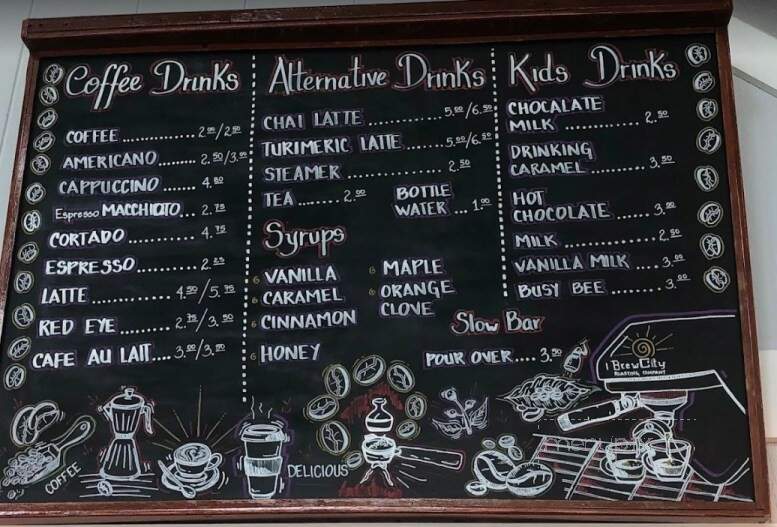 Coffee Drinks
COFFEE ........... 2.00/2.50
AMERICANO......... 2.50/3.00
CAPPUCCINO ...... 4.50
Espresso MACCHIOTO... 2.75
CORTADO ........... 4.75
ESPRESSO.......... 2.25
LATTE .............. 4.50/5.75
RED EYE ........... 2.75/3.50
CAFE AU LAIT.... 3.00/3.50
Alternative Drinks
CHAI LATTE ........... 5.00/6.50
TURIMERIC LATTE ....... 5.00/6.50
STEAMER .............. 2.50
TEA ....... 2.00
BOTTLE
WATER ... 1.00
Syrups
VANILLA
CARAMEL
CINNAMON
HONEY
MAPLE
ORANGE
CLOVE
Slow Bar
POUR OVER.... 3.50
Kids Drinks
CHOCALATE
MILK ........... 2.50
DRINKING
CARAMEL ......... 3.50
HOT
CHOCOLATE ...... 3.00
MILK .............. 2.50
VANILLA MILK .... 3.00
BUSY BEE ........ 3.00
BrewCity
ROASTING COMPANY
COFFEE
DELICIOUS